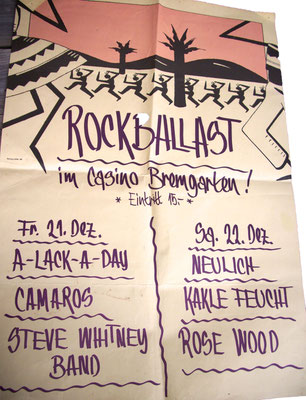 ROCKBALLAST
im Casino Bremgarten!
* Eintritt 15.- *
Fr. 21. Dez.
A-LACK-A-DAY
CAMAROS
STEVE WHITNEY
BAND
Sa. 22. Dez.
NEULICH
KAKLE FEUCHT
ROSE WOOD